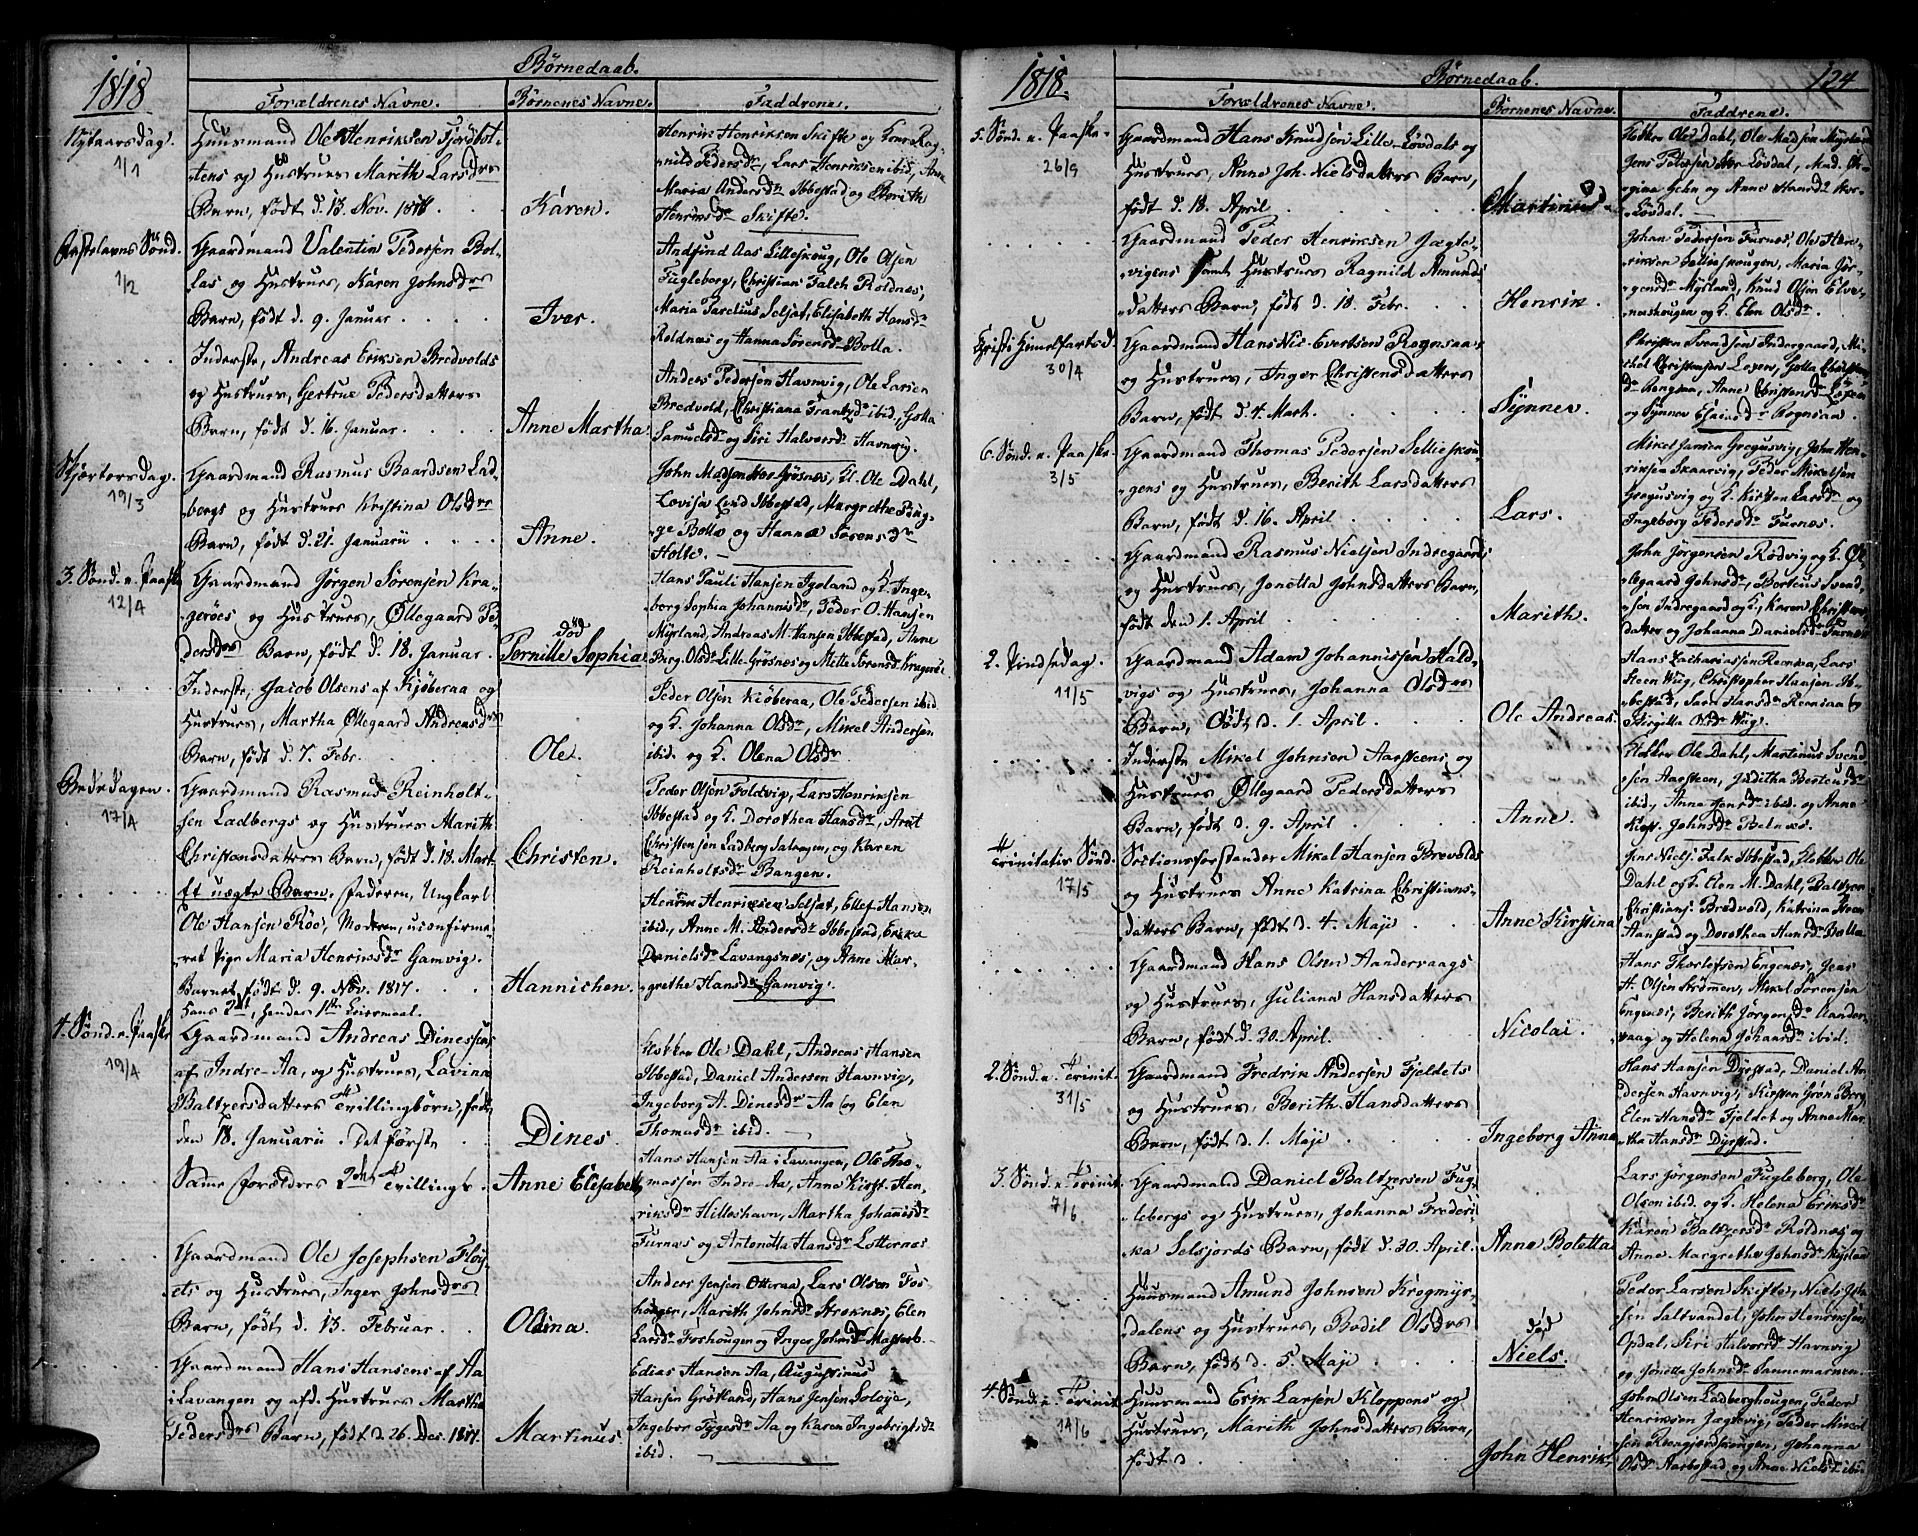 1818
Børnedaab.
Forældrenes Navne. Børnenes Navne. Faddrene.
Nytaarsdag.
1/1
Huusmand Ole Henriksen Fjordbot-
tens og Hustrues Marith Larsdrs
Barn, født d. 13. Nov. 1818
Karen.
Henrik Henriksen Skifte og Kone Rag-
nild Pedersdr, Lars Henriksen ibid, Ane
Maria Andersdr Ibbestad og Berith
Henriksdr Skifte.
Fastelavns Sønd.
1/2
Gaardmand Valentin Pedersen Bol-
las og Hustrues, Karen Johnsdrs
Barn, født d. 9. Januar
Iver.
Andfind Aas Lilleskoug, Ole Olsen
Fugleborg, Christian Falch Roldnes,
Maria Parelius Seljæt, Elisabeth Hansdr
Roldnæs og Hanna Sørensdr Bolla.
Inderste, Andreas Eriksen Bredvolds
og Hustrues, Gertrue Pedersdatters
Barn, født d. 16. Januar
Anne Martha
Anders Pedersen Havnvig, Ole Larsen
Bredvold, Christiana Frantzdr ibid, Golla
Samuelsdr og Siri Halvorsdr Havnvig.
Skjærtorsdag.
19/3
Gaardmand Rasmus Baardsen Lad-
bergs og Hustrues Kristina Olsdrs
Barn, født d. 21. Januarii
Anne.
John Madsen Store Grøsnæs, Kl. Ole Dahl,
Lovisa Lund Ibbestad, Margrethe Brüg-
ge Bolla og Hanna Sørensdr
Holte.
3. Sønd. e. Paaske
12/4
Gaardmand Jørgen Sørensen Kra-
gerøes og Hustrues, Ollegaard Pe-
dersdrs Barn, født d. 18. Januar
død
Pernille Sophia
Hans Pauli Hansen Igeland og K. Inge-
borg Sophia Johannisdr, Peder O. Hansen
Myrland, Andreas M. Hansen Ibbestad, Anne
Birg. Olsdr Lille-Grøsnes og Mette Sørensdr Kragerøe
Inderste, Jacob Olsens af Kjøberaa og
Hustrues, Martha Ollegaard Andreasdrs
Barn, født d. 7. Febr.
Ole.
Peder Olsen Kiøberaa, Ole Pedersen ibid
og K. Johanna Olsdr, Mikel Andersen
ibid. og K. Olena Olsdr
Bededagen.
17/4
Gaardmand Rasmus Reinholt-
sen Ladbergs og Hustrues Marith
Christensdatters Barn, født d. 18. Mart
Christen.
Peder Olsen Foldvig, Lars Henriksen
Ibbestad og K. Dorothea Hansdr, Arnt
Christensen Ladberg Salvogen, og Karen
Reinholtsdr Bangen.
Et uægte Barn. Faderen, Ungkarl
Ole Hansen Röe, Moderen, uconfirme-
ret Pige Maria Henriksdr Gamvig.
Barnet født d. 9. Nov. 1817
Hans 2det, hendes 1ste Leiermaal.
Hannichen.
Henrik Henriksen Seljæt, Ellef Hansen
ibid, Anne M. Andersdr Ibbestad, Erika
Danielsdr Lavangsnes, og Anne Mar-
grethe Hansdr Gamvig.
4. Sønd. e. Paaske
19/4
Gaardmand Andreas Dinessens
af Indre-Aa, og Hustrues, Lavina
Baltzersdatters Tvillingbörn, født
den 18. Januarii. det første
Dines.
Klokker Ole Dahl, Andreas Hansen
Ibbestad, Daniel Andersen Havnvig,
Ingeborg A. Dinesdr Aa og Elen
Thomasdr ibid.
Samme Forældres 2den Tvillingb.
Anne Elisabeth
Hans Hansen Aa i Lavangen, Ole Tho-
massen Indre-Aa, Anne Kirst. Hen-
riksdr Hilleshavn, Martha Johannisdr
Furnæs og Antonetta Hansdr Lotternes
Gaardmand Ole Josephsen Fløy-
ets og Hustrues, Inger Johnsdrs
Barn, født d. 13. Februar.
Oldina.
Anders Jensen Otteraa, Lars Olsen Fos-
hougen, Marith Johnsdr Stroknes, Elen
Larsdr Foshougen og Inger Johnsdr
Gaardmand Hans Hansens af Aa
i Lavangen og afd. Hustrues Martha
Pedersdrs Barn, født d. 26. Dec. 1817.
Martinus
Edias Hansen Aa, Augustinus
Hansen Grøtland, Hans Jensen Soløye,
Ingebor Tygesdr Aa og Karen Ingebrigtsdr
ibid.
1818.
Børnedaab.
124
Forældrenes Navne. Børnenes Navne. Faddrene.
5. Sønd. e. Paaske
26/9
Gaardmand Hans Knudsen Lille-Løvdals og
Hustrues, Anne Joh. Nielsdatters Barn,
født d. 18. April.
Martinus
Klokker Ole Dahl, Ole Madsen Myrland
Jens Petersen Løvdal, Mad.
og Anne Hansdr
Løvdal.
Gaardmand Peder Henriksen Jægte-
vigens samt Hustrues Ragnild Amunds
datters Barn, født d. 18. Febr.
Henrik.
Johan Pedersen Furnes, Ole Hen-
riksen Sellieskougen, Maria Jör-
gensdr Myrland, Knud Olsen Elve-
neshougen og K. Elen Olsdr.
Christi Himelfartsd.
30/4
Gaardmand Hans Nic. Evertsen Rogensaas
og Hustrues, Inger Christensdatters
Barn, født d. 4. Marti.
Synnev.
Christen Svendsen Indregaard, Mi-
chel Christensen Løxen, Golla Christens
dr Rongsaa, Anne Christensdr Løxen
og Synnev Esaiasdr Rognsaa.
6. Sønd. e. Paaske
3/5
Gaardmand Thomas Pedersen Sellieskou-
gens og Hustrues, Berith Larsdatters
Barn, født d. 16. April
Lars.
Mikel Jansen Gregusvig, John Hen-
riksen Skaarvig, Peder Mikelsen
Gregusvig og K. Kirsten Larsdr og
Ingeborg Pedersdr Furnæs.
Gaardmand Rasmus Nielsen Indregaards
og Hustrues, Jonetta Johnsdatters Barn,
født den 1. April
Marith.
John Jørgensen Rødvig og K. Ol-
legaard Johnsdr, Berteus Svend-
sen Indregaard og K. Karen Christens
datter og Johanna Danielsdr Furnes
2. Pindsedag.
11/5
Gaardmand Adam Johannissen Kald-
vigs og Hustrues, Johanna Olsdrs
Barn, født d. 1. April
Ole Andreas.
Hans Zachariassen Reensaa, Lars
Steen Vüg, Christopher Hansen Ib-
bestad, Sara Hansdr Reensaa og
Birgitta Olsdr Vüg.
Inderste Mikel Johnsen Aarsteens og
Hustrues Ollegaard Pedersdatters
Barn, født d. 9. April
Anne.
Klokker Ole Dahl, Martinus Svend
sen Aarsteen, Juditha Berteusdr
ibid, Anna Jensdr ibid. og Anne
Kirst. Johnsdr Bolnes.
Trinitatis Sønd.
17/5
Sectionsforstander Mikel Hansen Bredvolds
og Hustrues Anne Katrina Christians-
datters Barn, født d. 4. Maji
Anne Kirstina
Jens Nielss. Falk Ibbestad, Klokker Ole
Dahl og K. Elen M. Dahl, Baltzer
Christians. Bredvold, Katrina
Aanstad og Dorothea Hansdr Bolla
Gaardmand Hans Olsen Aandervaags
og Hustrues, Juliana Hansdatters
Barn, født d. 20. April.
Nicolai.
Hans Thorlefsen Engenæs, Jens
A. Olsen Strømmen, Mikel Sørensen
Engenæs, Berith Jørgensdr Aander-
vaag og Helena Johansdr ibid.
2. Sønd. e. Trinit.
31/5
Gaardmand Fredrik Andersen Fjeldets
og Hustrues, Berith Hansdatters
Barn, født d. 1. Maji
Ingeborg Anna
Hans Hansen Dyrstad, Daniel An-
dersen Havnvig, Kirsten Grøn Borg,
Elen Hansdr Fjeldet og Anne Mar-
tha Hansdr Dyrstad.
3. Sønd. e. Trinit.
7/6
Gaardmand Daniel Baltzersen Fug-
lebergs og Hustrues, Johanna Frederi-
ka Selsjords Barn, født d. 30. April.
Anne Boletta
Lars Jørgensen Fugleberg, Ole
Olsen ibid og K. Helena Eriksdr
Karen Baltzersdr Roldnæs og
Anne Margrethe Johnsdr Myrland
Huusmand Amund Johnsen Krogmyr-
dalens og Hustrues, Bodil Olsdrs
Barn, født d. 5. Maji
død
Niels.
Peder Larsen Skifte, Niels Joh-
sen Saltvandet, John Henriksen
Opdal, Siri Halvorsdr Havnvig
og Jonetta Johnsdr Sannemarneen.
4. Sønd. e. Trinit.
14/6
Huusmand Erik Larsen Kloppens og
Hustrues, Marith Johnsdatters Barn,
født d
John Henrik
John Olsen Ladberghougen, Peder
Henriksen Jægtevig, Peder Mikel
sen, Johanna
Olsdr Aarbostad og Anne Nielsdr ibid